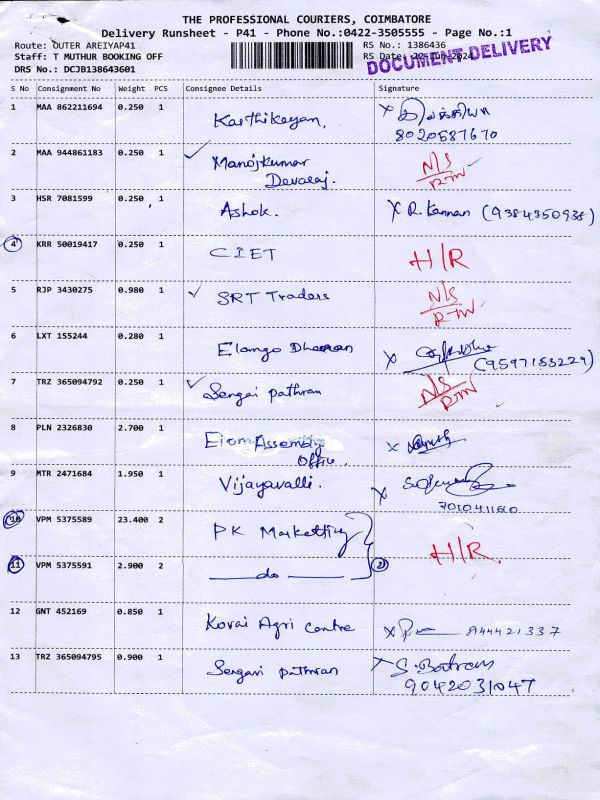 THE PROFESSIONAL COURIERS, COIMBATORE
Delivery Runsheet - P41 - Phone No.:0422-3505555 - Page No.:1
Route: OUTER AREIYAP41 RS No.: 1386436
Staff: T MUTHUR BOOKING OFF RS Date: 22-Jun-2024
DOCUMENT DELIVERY
DRS No.: DCJB138643601
S No Consignment No Weight PCS Consignee Details Signature
1 MAA 862211694 0.250 1 Karthikeyan,
8020687670
2 MAA 944861183 0.250 1 Manojkumar N/S
Devaraj. RTN
3 HSR 7081599 0.250 1 Ashok. X R. Kannan (9384350938)
4 KRR 50019417 0.250 1 CIET H/R
5 RJP 3430275 0.980 1 SRT Traders N/S
RTN
6 LXT 155244 0.280 1 Elango X
(9597183229)
7 TRZ 365094792 0.250 1 Sengai pathran N/S
RTN
8 PLN 2326830 2.700 1 Assembly X
Office
9 MTR 2471684 1.950 1 Vijayavalli. X
10 VPM 5375589 23.400 2 PK Marketting
H/R
11 VPM 5375591 2.900 2 do 2
12 GNT 452169 0.850 1 Kovai Agri Centre X 944421337
13 TRZ 365094795 0.900 1 Sengavi pathran X
9042031047